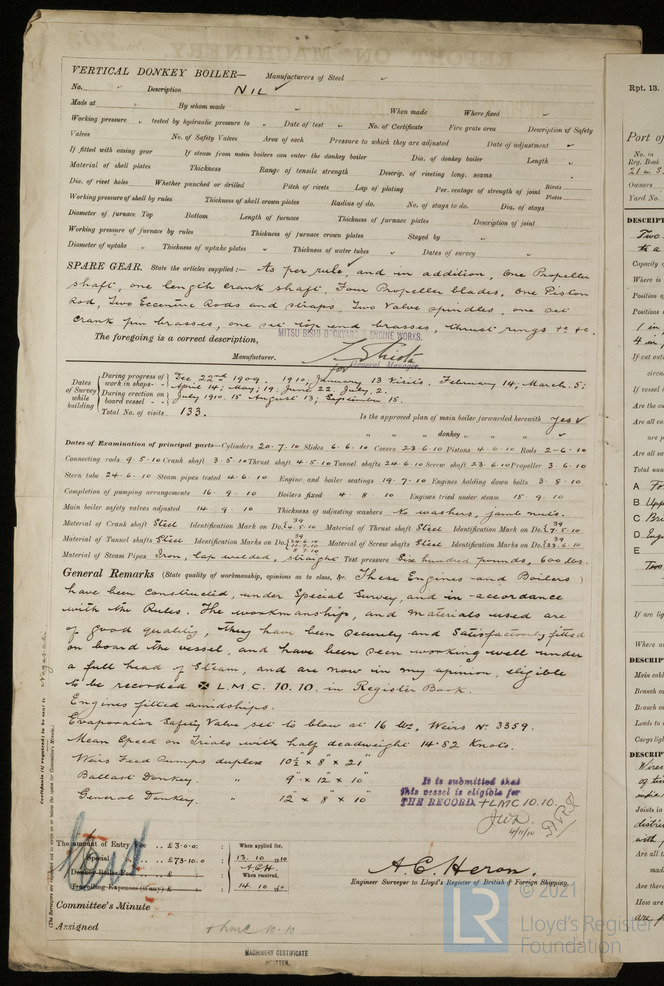 VERTICAL DONKEY BOILER— Manufacturers of Steel
No. Description NIL ✓
Made at By whom made When made Where fixed
Working pressure tested by hydraulic pressure to Date of test No. of Certificate Fire grate area Description of Safety
Valves No. of Safety Valves Area of each Pressure to which they are adjusted Date of adjustment
If fitted with easing gear If steam from main boilers can enter the donkey boiler Dia. of donkey boiler Length
Material of shell plates Thickness Range of tensile strength Descrip. of riveting long. seams
Dia. of rivet holes Whether punched or drilled Pitch of rivets Lap of plating Per centage of strength of joint Rivets Plates
Working pressure of shell by rules Thickness of shell crown plates Radius of do. No. of stays to do. Dia. of stays
Diameter of furnace Top Bottom Length of furnace Thickness of furnace plates Description of joint
Working pressure of furnace by rules Thickness of furnace crown plates Stayed by
Diameter of uptake Thickness of uptake plates Thickness of water tubes Dates of survey
SPARE GEAR. State the articles supplied:— As per rule, and in addition, One Propeller
shaft, one length crank shaft, Four Propeller blades, One Piston
Rod, Two Eccentric Rods and straps, Two Valve spindles, one set
Crank pin brasses, one set top end brasses, thrust rings &c &c.
The foregoing is a correct description,
MITSU BISHI DOCKYARD & ENGINE WORKS,
Manufacturer. for General Manager.
Dates of Survey while building
During progress of work in shops - - Dec 22nd 1909. 1910, January 13 Visits. February 14; March 5;
April 14; May; 19. June 22. July, 2.
During erection on board vessel - - - July 1910. 15 August 13; September 15.
Total No. of visits 133. Is the approved plan of main boiler forwarded herewith Yes ✓
" " " donkey " " " ✓
Dates of Examination of principal parts—Cylinders 20.7.10 Slides 6.6.10 Covers 23.6.10 Pistons 4.6.10 Rods 2.6.10
Connecting rods 9.5.10 Crank shaft 3.5.10 Thrust shaft 4.5.10 Tunnel shafts 24.6.10 Screw shaft 23.6.10 Propeller 3.6.10
Stern tube 24.6.10 Steam pipes tested 4.6.10 Engine and boiler seatings 19.7.10 Engines holding down bolts 3.8.10
Completion of pumping arrangements 16.9.10 Boilers fixed 4.8.10 Engines tried under steam 15.9.10
Main boiler safety valves adjusted 14.9.10 Thickness of adjusting washers No washers, jamb nuts.
Material of Crank shaft Steel Identification Mark on Do. Material of Thrust shaft Steel Identification Mark on Do.
Material of Tunnel shafts Steel Identification Marks on Do. Material of Screw shafts Steel Identification Marks on Do.
Material of Steam Pipes Iron, lap welded, straight Test pressure Six hundred pounds, 600 lbs.
General Remarks (State quality of workmanship, opinions as to class, &c. These Engines and Boilers
have been constructed, under Special Survey, and in accordance
with the Rules. The workmanship, and materials used are
of good quality, they have been securely and Satisfactorily fitted
on board the vessel, and have been seen working well under
a full head of Steam, and are now in my opinion, eligible
to be recorded ✠ L.M.C. 10.10. in Register Book.
Engines fitted amidships.
Evaporator Safety Valve set to blow at 16 lbs, Weirs No 3359.
Mean Speed on Trials with half deadweight 14.52 Knots.
Weirs Feed Pumps duplex 10½" × 8" × 21"
Ballast Donkey " 9" × 12" × 10"
General Donkey. " 12" × 8" × 10"
It is submitted that
this vessel is eligible for
THE RECORD. + LMC 10.10.
4/11/10
Certificate (if required) to be sent to Nagasaki
The amount of Entry Fee .. £3:0:0: When applied for,
Special .. £73.10.0 : 13.10.10
Donkey Boiler Fee .. £ : When received,
Travelling Expenses (if any) £ : 14.10.10
A. C. Heron.
Engineer Surveyor to Lloyd's Register of British & Foreign Shipping.
Committee's Minute
Assigned + LMC 10.10
MACHINERY CERTIFICATE
WRITTEN.
© 2021
LR Lloyd's Register
Foundation
Rpt. 13.
Port of
No. in
Reg. Book
Owners
Yard No.
DESCRIPT
Two
Capacity
Where is
Position
Positions
1 in
4 in
If cut out
circu
If vessel
Are the
Are all
are p
Are all
Total num
A
B Upp
C
D Eng
E
Two
If are lig
Where a
DESCRIP
Main cabl
Branch
Branch
Leads to
Cargo ligh
DESCRIP
Wires
Joints in
with
Are all
mad
Are there
How are
are